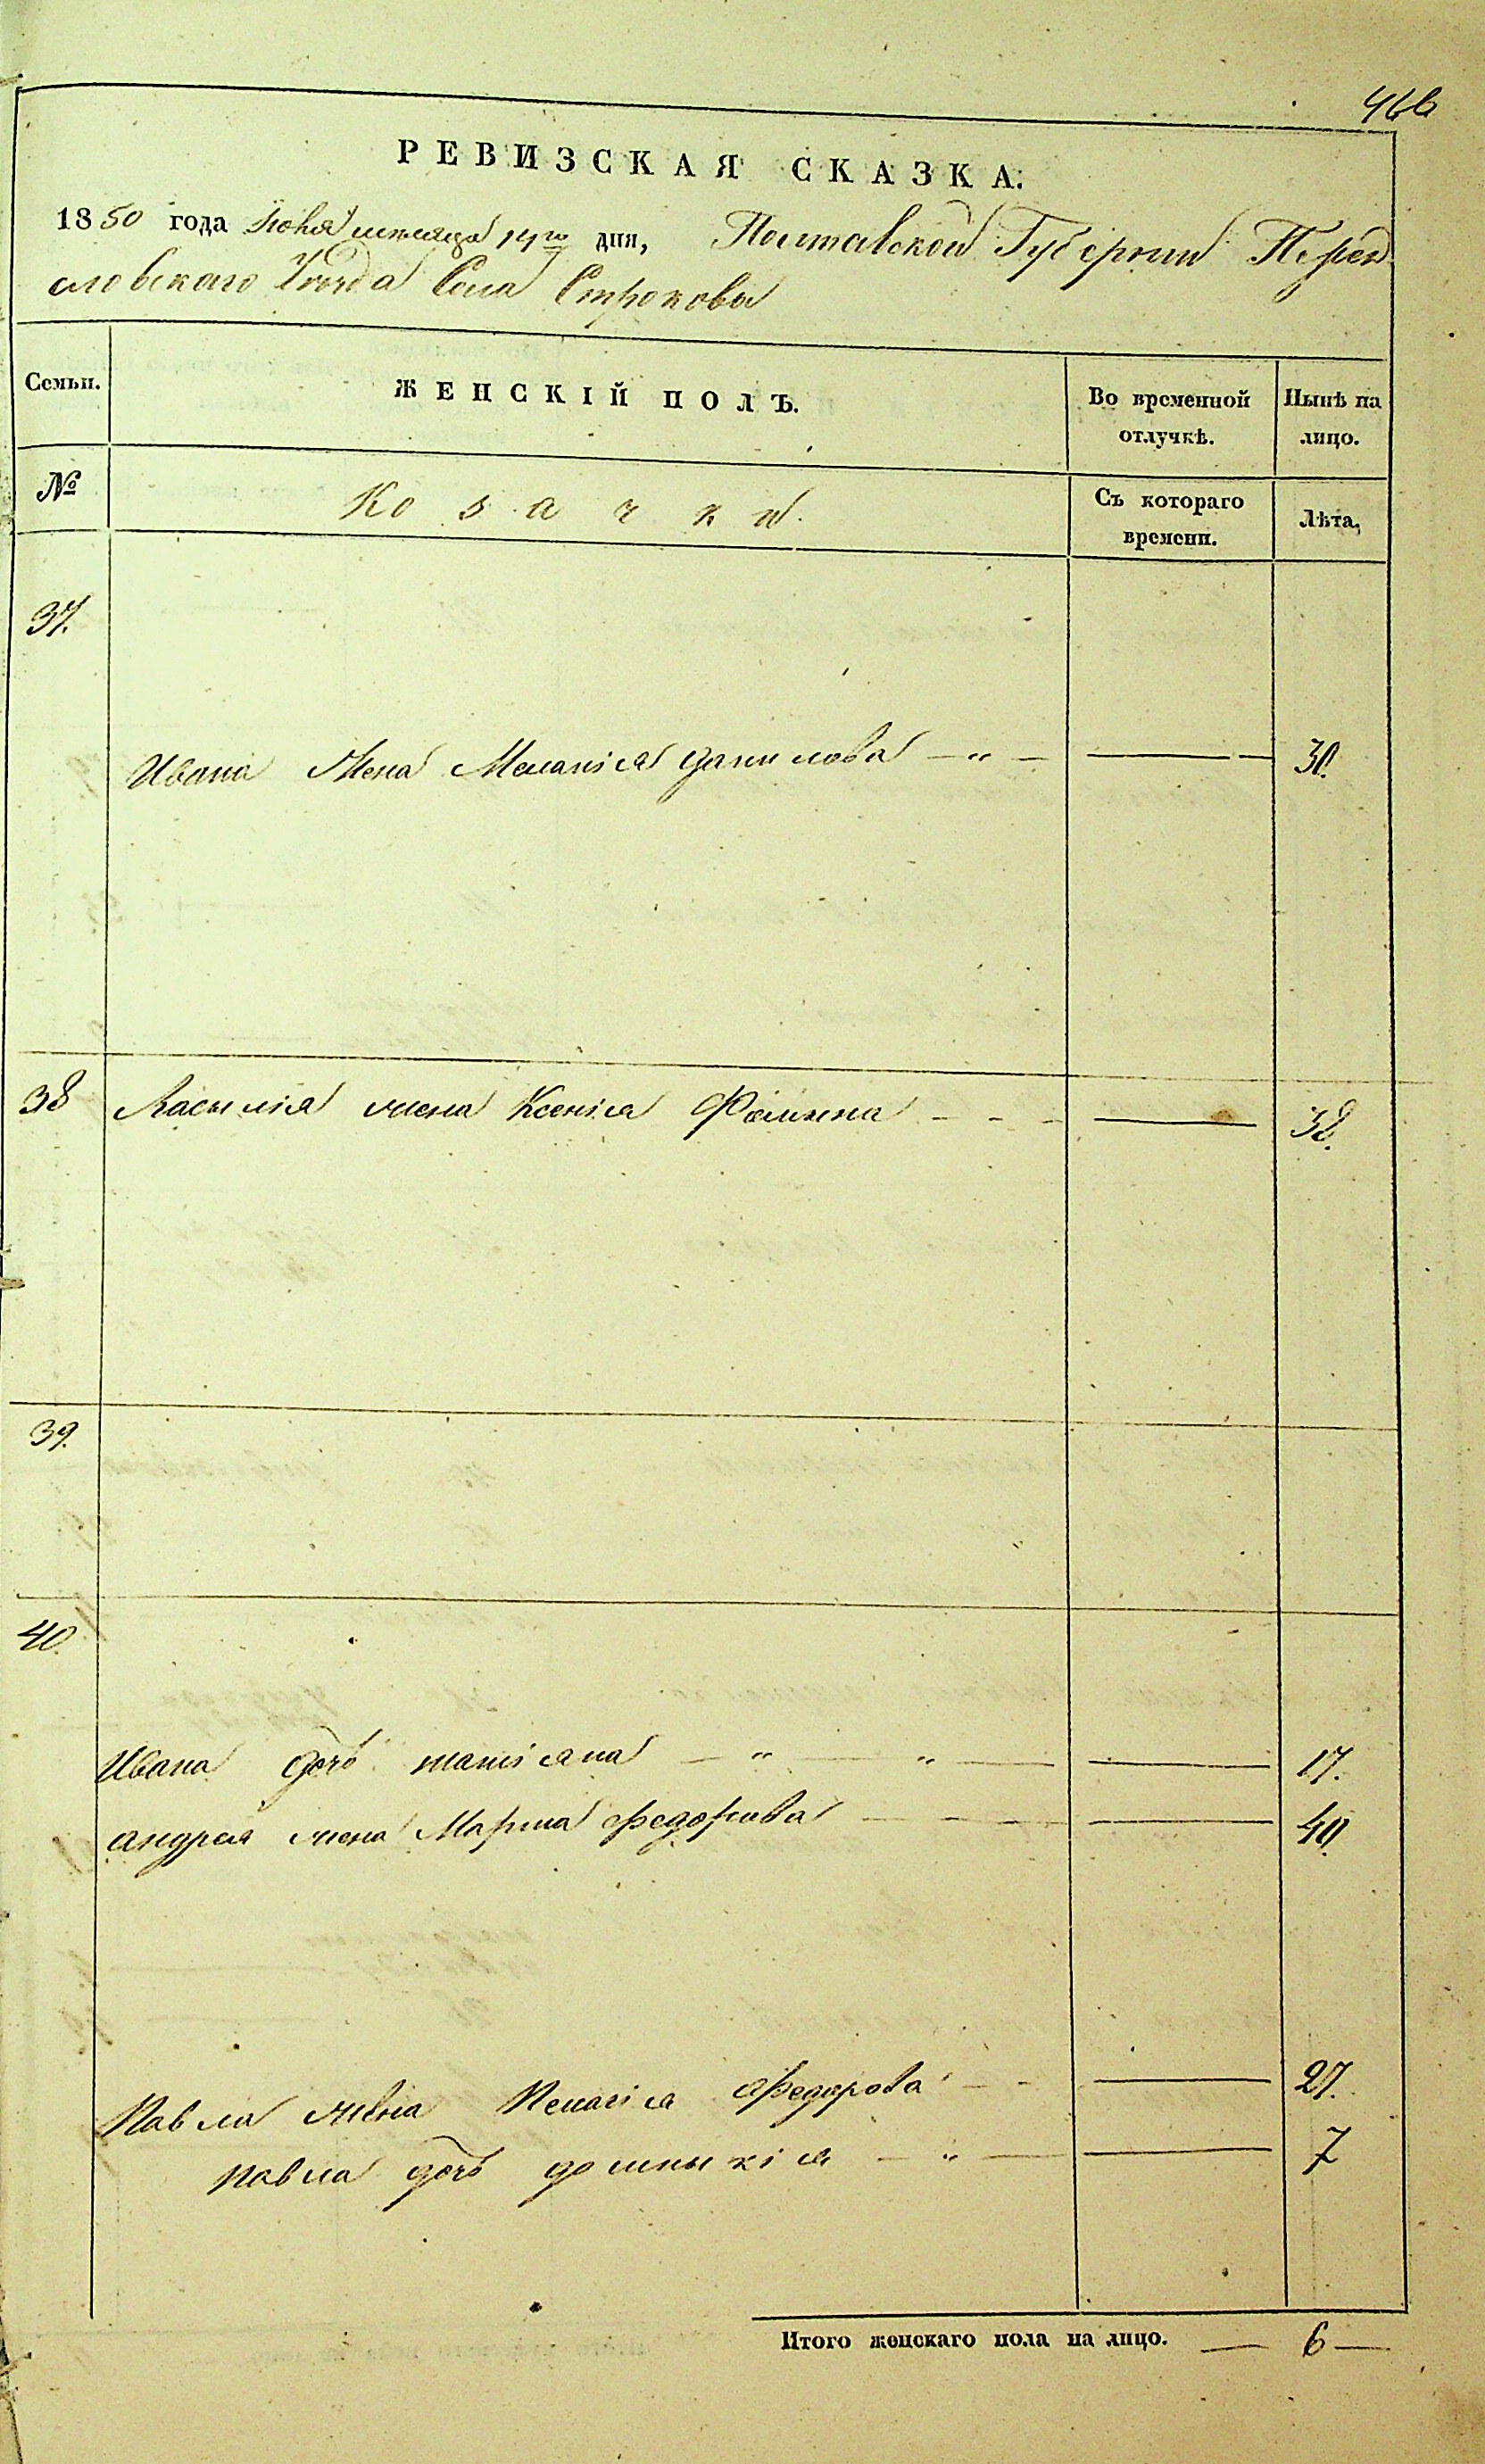 466
РЕВИЗСКАЯ СКАЗКА.
1850 года Июня месяца 14го дня, Полтавской Губернии Перея
словскаго Уезда Села Строковы
Семьи.
ЖЕНСКІЙ ПОЛЪ.
Во временной отлучкѣ.
Нынѣ на лицо.
№
Козачки.
Съ котораго времени.
Лѣта,
37.
Ивана жена Меланія данилова — „ — 30.
38 Василія жена Ксенія Фомина - - - 38.
39.
40.
Ивана дочь татіяна — „ — „ — 17.
андрея жена Марфа федорова — 40.
Павла жена Пелагія Федорова - - 27.
павла дочь домникія — „ — 7
Итого женскаго пола на лицо. — 6 —